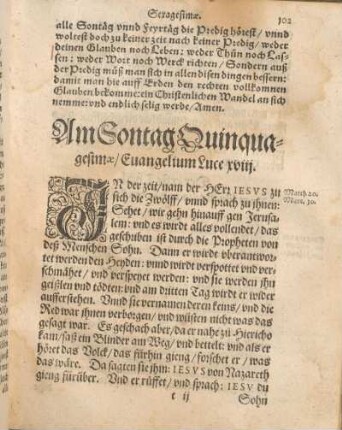 Sexagesimæ.
302
alle Sontåg vnnd Feyrtåg die Predig hörest/ vnnd
woltest doch zu keiner zeit nach keiner Predig/ weder
deinen Glauben noch Leben: weder Thůn noch Las-
sen: weder Wort noch Werck richten/ Sondern auß
der Predig můß man sich in allen disen dingen bessern:
damit man hie auff Erden den rechten vollkomnen
Glauben bekomme: ein Christenlichen Wandel an sich
nemme: vnd endlich selig werde/ Amen.
Am Sontag Quinqua-
gesimæ/ Euangelium Luce xviij.
IN der zeit/ nam der HErr IESVS zů
sich die Zwölff/ vnnd sprach zu jhnen:
Sehet/ wir gehn hinauff gen Jerusa-
lem: vnd es wirdt alles vollendet/ das
geschriben ist durch die Propheten von
deß Menschen Sohn. Dann er wirdt vberantwor-
tet werden den Heyden: vnnd wirdt verspottet vnd ver-
schmåhet/ vnd verspeyet werden: vnd sie werden jhn
geißlen vnd tödten: vnd am dritten Tag wirdt er wider
aufferstehen. Vnnd sie vernamen deren keins/ vnd die
Red war jhnen verborgen/ vnd wüsten nicht was das
gesagt war. Es geschach aber/ da er nahe zu Hiericho
kam/ saß ein Blinder am Weg/ vnd bettelt: vnd als er
höret das Volck/ das fürhin gieng/ forschet er/ was
das wåre. Da sagten sie jhm: IESVS von Nazareth
gieng fürüber. Vnd er růffet/ vnd sprach: IESV du
Matth. 20.
Marc. 10.
t ij
Sohn